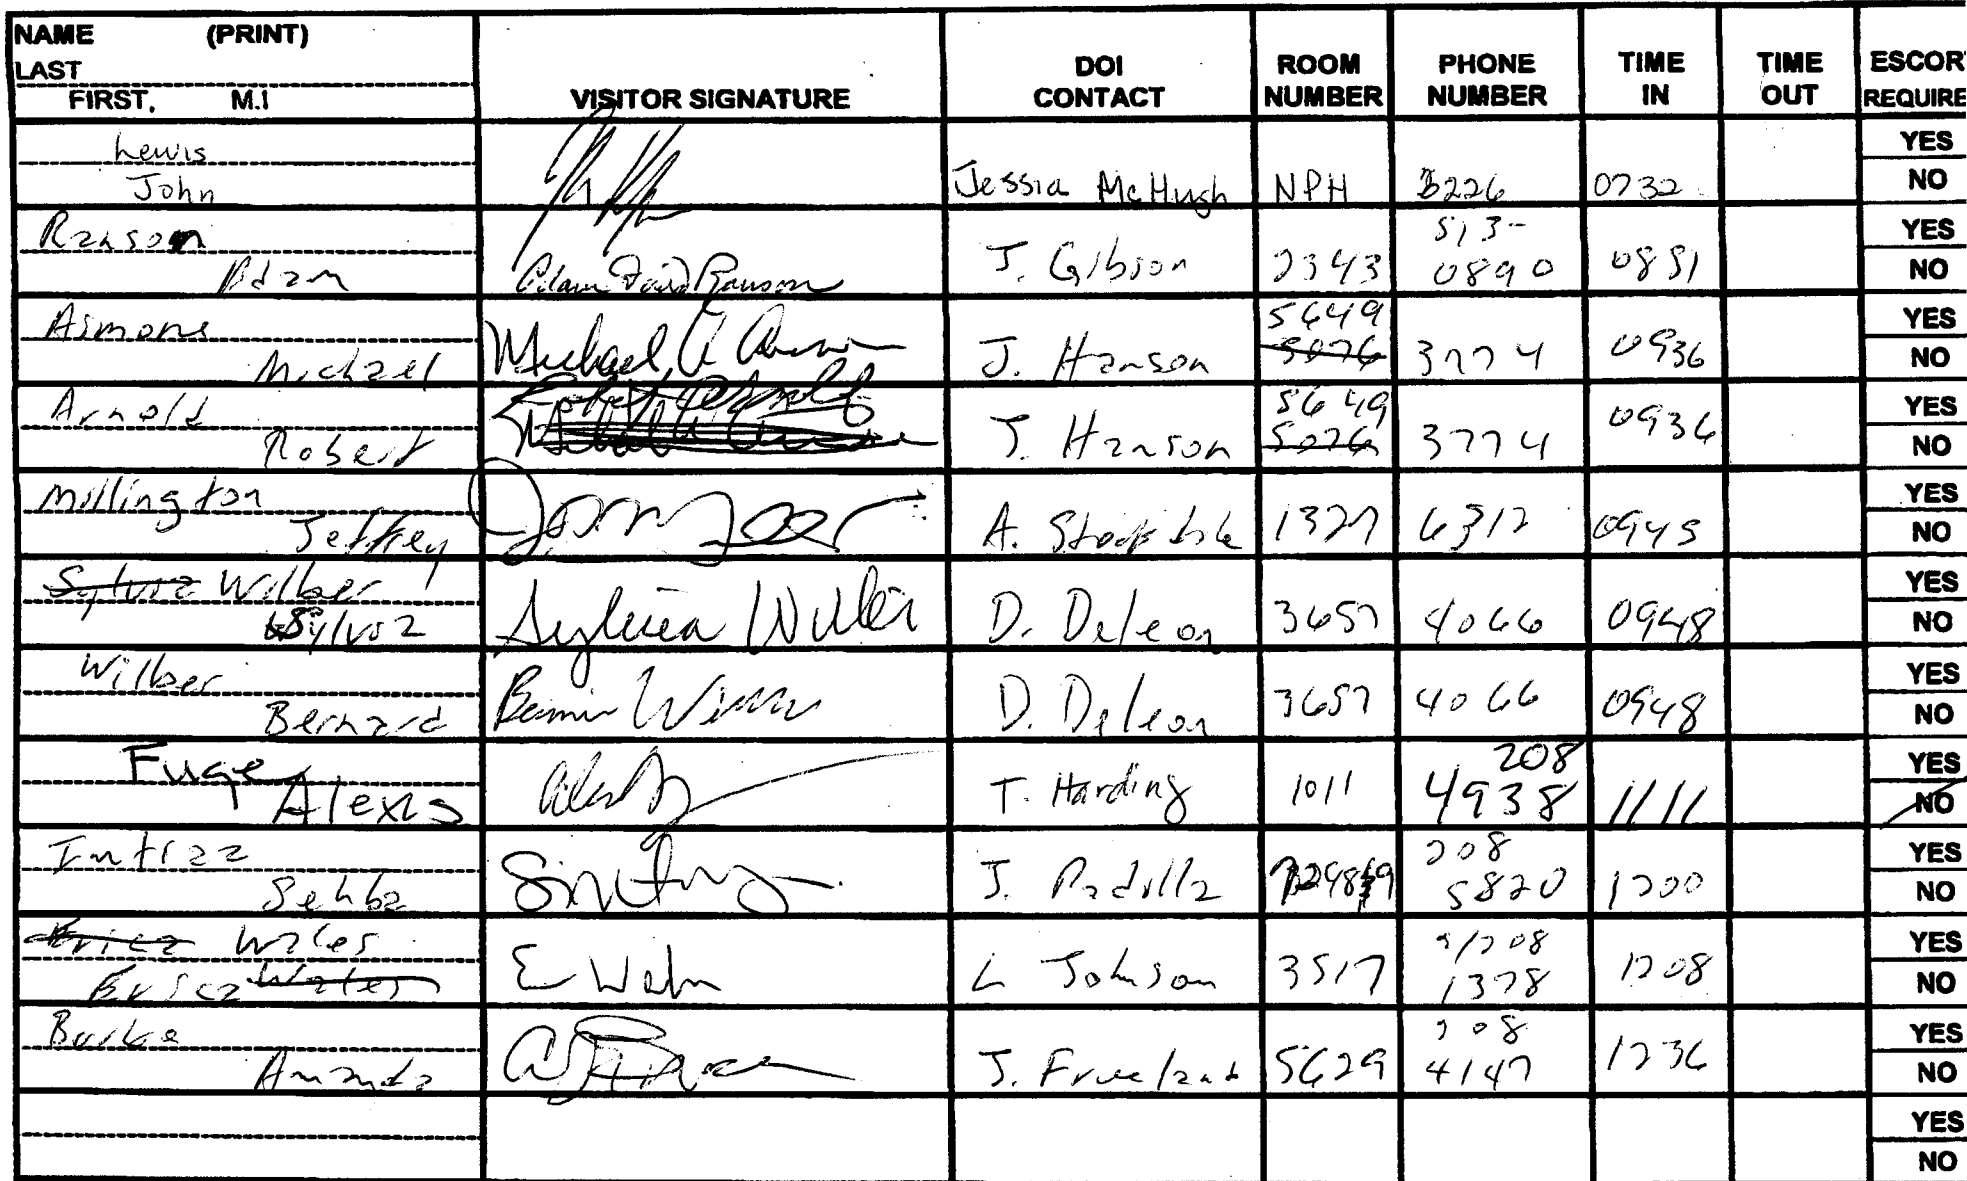 NAME (PRINT)
LAST
FIRST, M.I
VISITOR SIGNATURE
DOI CONTACT
ROOM NUMBER
PHONE NUMBER
TIME IN
TIME OUT
ESCOR
REQUIRE
Lewis
John
Jessia McHugh NPH 3226 0732
YES
NO
Ransom
Adam
Adam David Ransom
J. Gibson 2343
513-
0890
YES
NO
Asmone
Michael
Michael A
J. Hanson
5649
5076
3774 0936
YES
NO
Arnold
Robert
J. Hanson
5649
5076
3774 0936
YES
NO
Millington
Jeffrey
A. 1327 6312 0945
YES
NO
Sylvia Wilber
Sylvia
Sylvia Wilber
D. Deleon 3657 4066 0948
YES
NO
Wilber
Bernard
D. Deleon 3657 4066 0948
YES
NO
Fuge,
Alexis
T. Harding 1011
208
4938
1111
YES
NO
Imtiaz
Sehba
J. Padilla
208
5820
1200
YES
NO
Erica Wales
Erica Wales
E
L Johnson 3517
208
1378
1208
YES
NO
Burke
Amanda
J. Freeland 5629
208
4147
1236
YES
NO
YES
NO